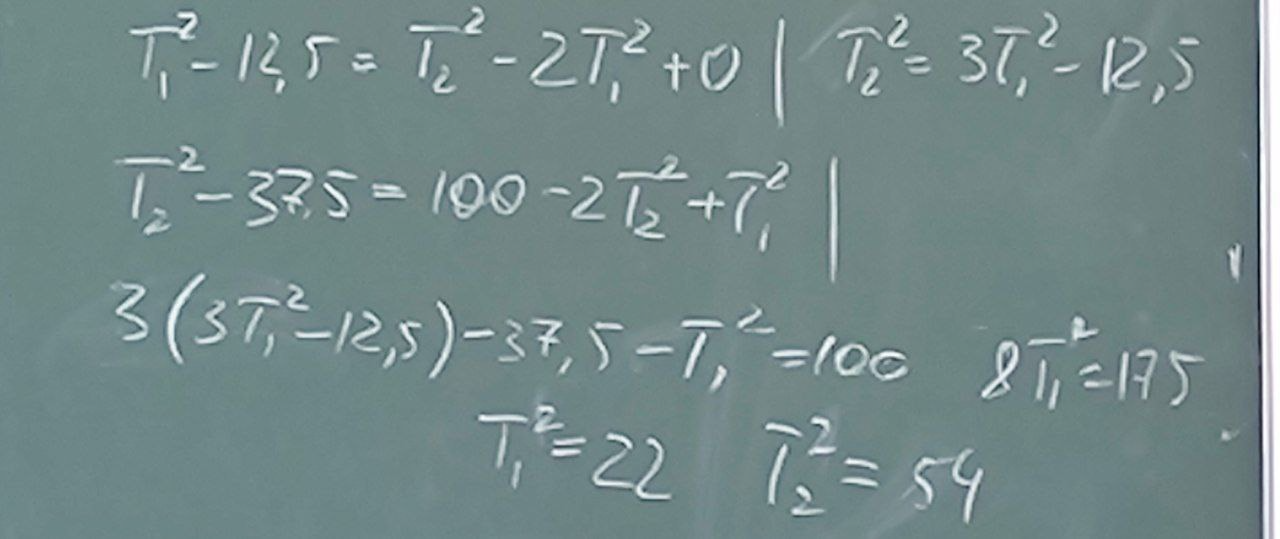 T₁² - 12,5 = T₂² - 2T₁² + 0 | T₂² = 3T₁² - 12,5
T₂² - 37,5 = 100 - 2T₂² + T₁² |
3(3T₁² - 12,5) - 37,5 - T₁² = 100 8T₁² = 175
T₁² = 22 T₂² = 54